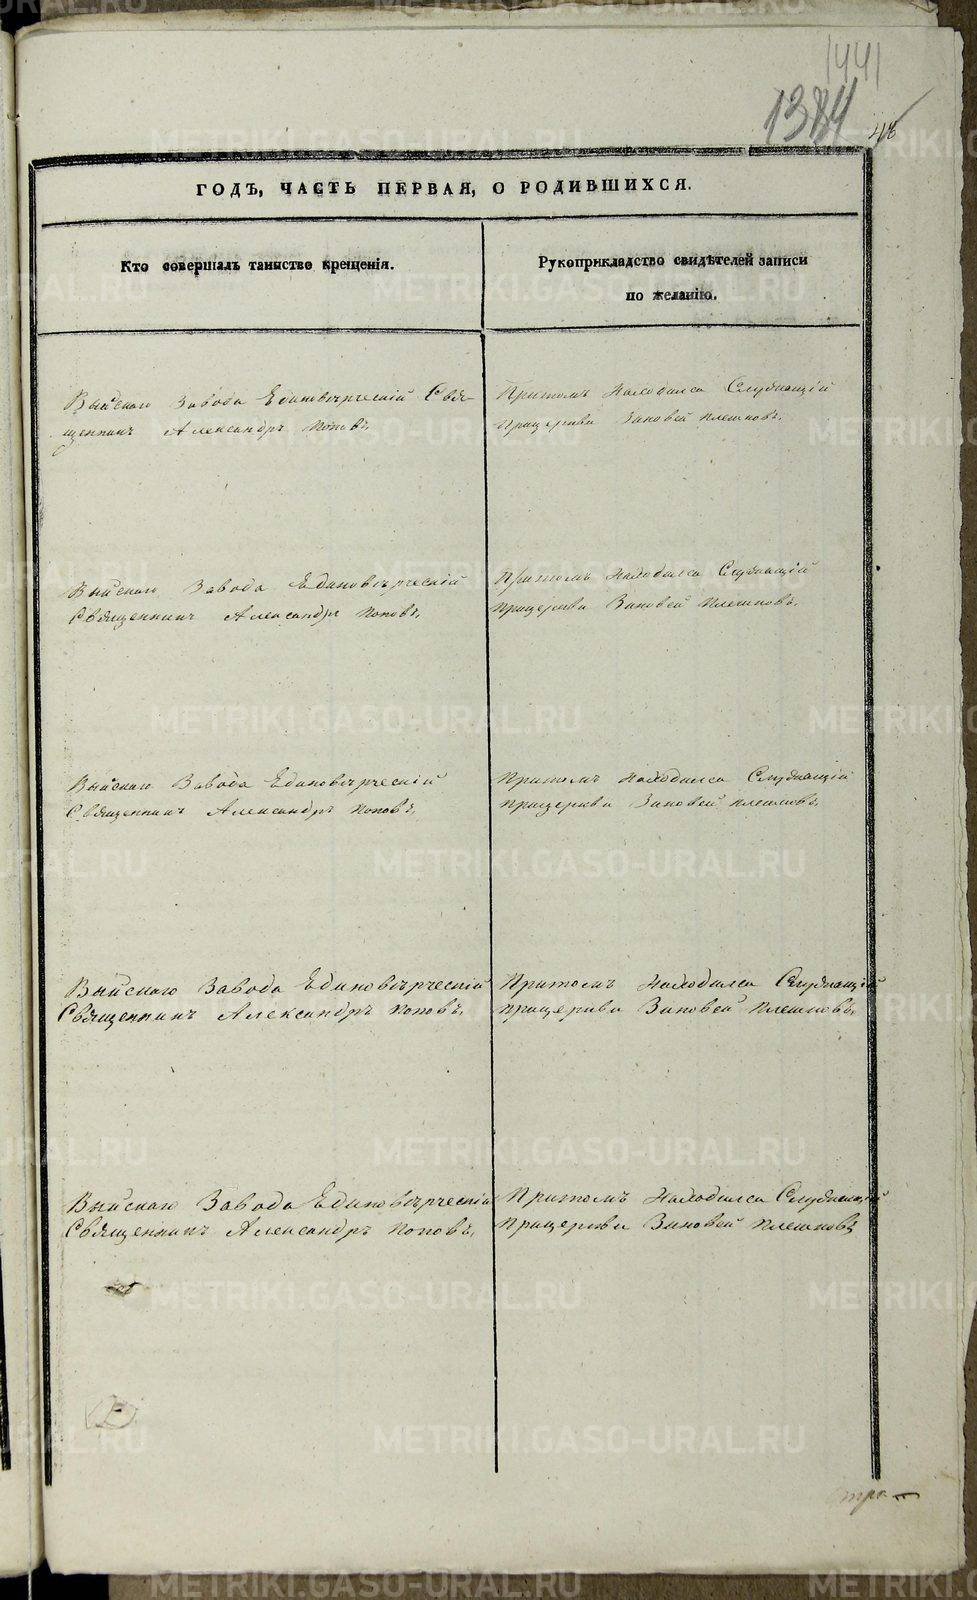 1441
1384
ГОДЪ, ЧАСТЬ ПЕРВАЯ, О РОДИВШИХСЯ.
Кто совершалъ таинство крещенія.
Рукоприкладство свидѣтелей записи
по желанію.
Выйскаго Завода Единовѣрческій Свя-
щенникъ Александръ Поповъ,
Притомъ Находился Служащій
Прицеркви Зиновей Плешковъ,
Выйскаго Завода Единовѣрческій
Священникъ Александръ Поповъ,
Притомъ Находился Служащій
Прицеркви Зиновей Плешковъ,
Выйскаго Завода Единовѣрческій
Священникъ Александръ Поповъ,
Притомъ Находился Служащій
Прицеркви Зиновей Плешковъ,
Выйскаго Завода Единовѣрческій
Священникъ Александръ Поповъ,
Притомъ Находился Служащій
Прицеркви Зиновей Плешковъ,
Выйскаго Завода Единовѣрческій
Священникъ Александръ Поповъ,
Притомъ Находился Служащій
Прицеркви Зиновей Плешковъ
METRIKI.GASO-URAL.RU